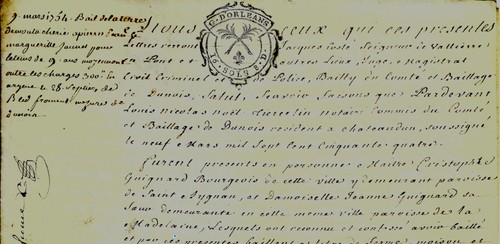 9. mars 1754. Bail de la terre
marguerite
de 9. ans moyennant
outre les charges 300ᵗᵗ en
argent et 28. Septiers de
bled froment mesure de
G. D'ORLEANS
2. SOLS 8. D
A Tous ceux qui ces presentes
Lettres verront Jacques Seigneur de Vallieres
Le Pont et autres Lieux, Juge, Magistrat
Civil Criminel et de Police, Bailly du Comté et Bailliage
de Dunois, Salut, Sçavoir faisons que Pardevant
Louis Nicolas Noël notaire commis du Comté
et Bailliage de Dunois resident a chateaudun, soussigné
le neuf Mars mil sept cent Cinquante quatre.
Furent presents en personne Maitre Cristophe
Guignard Bourgeois de cette ville y demeurant paroisse
de Saint Aignan, et Damoiselle Jeanne Guignard sa
Sœur demeurante en cette meme ville paroisse de la
Madelaine, Lesquels ont reconnu et confessé avoir baillé
et par ces presentes baillent a titre de ferme, moison et